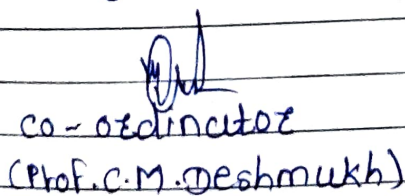 co-ordinator
(Prof. C.M. Deshmukh)